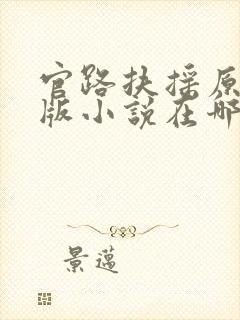 官路扶摇原
版小说在哪
景邁